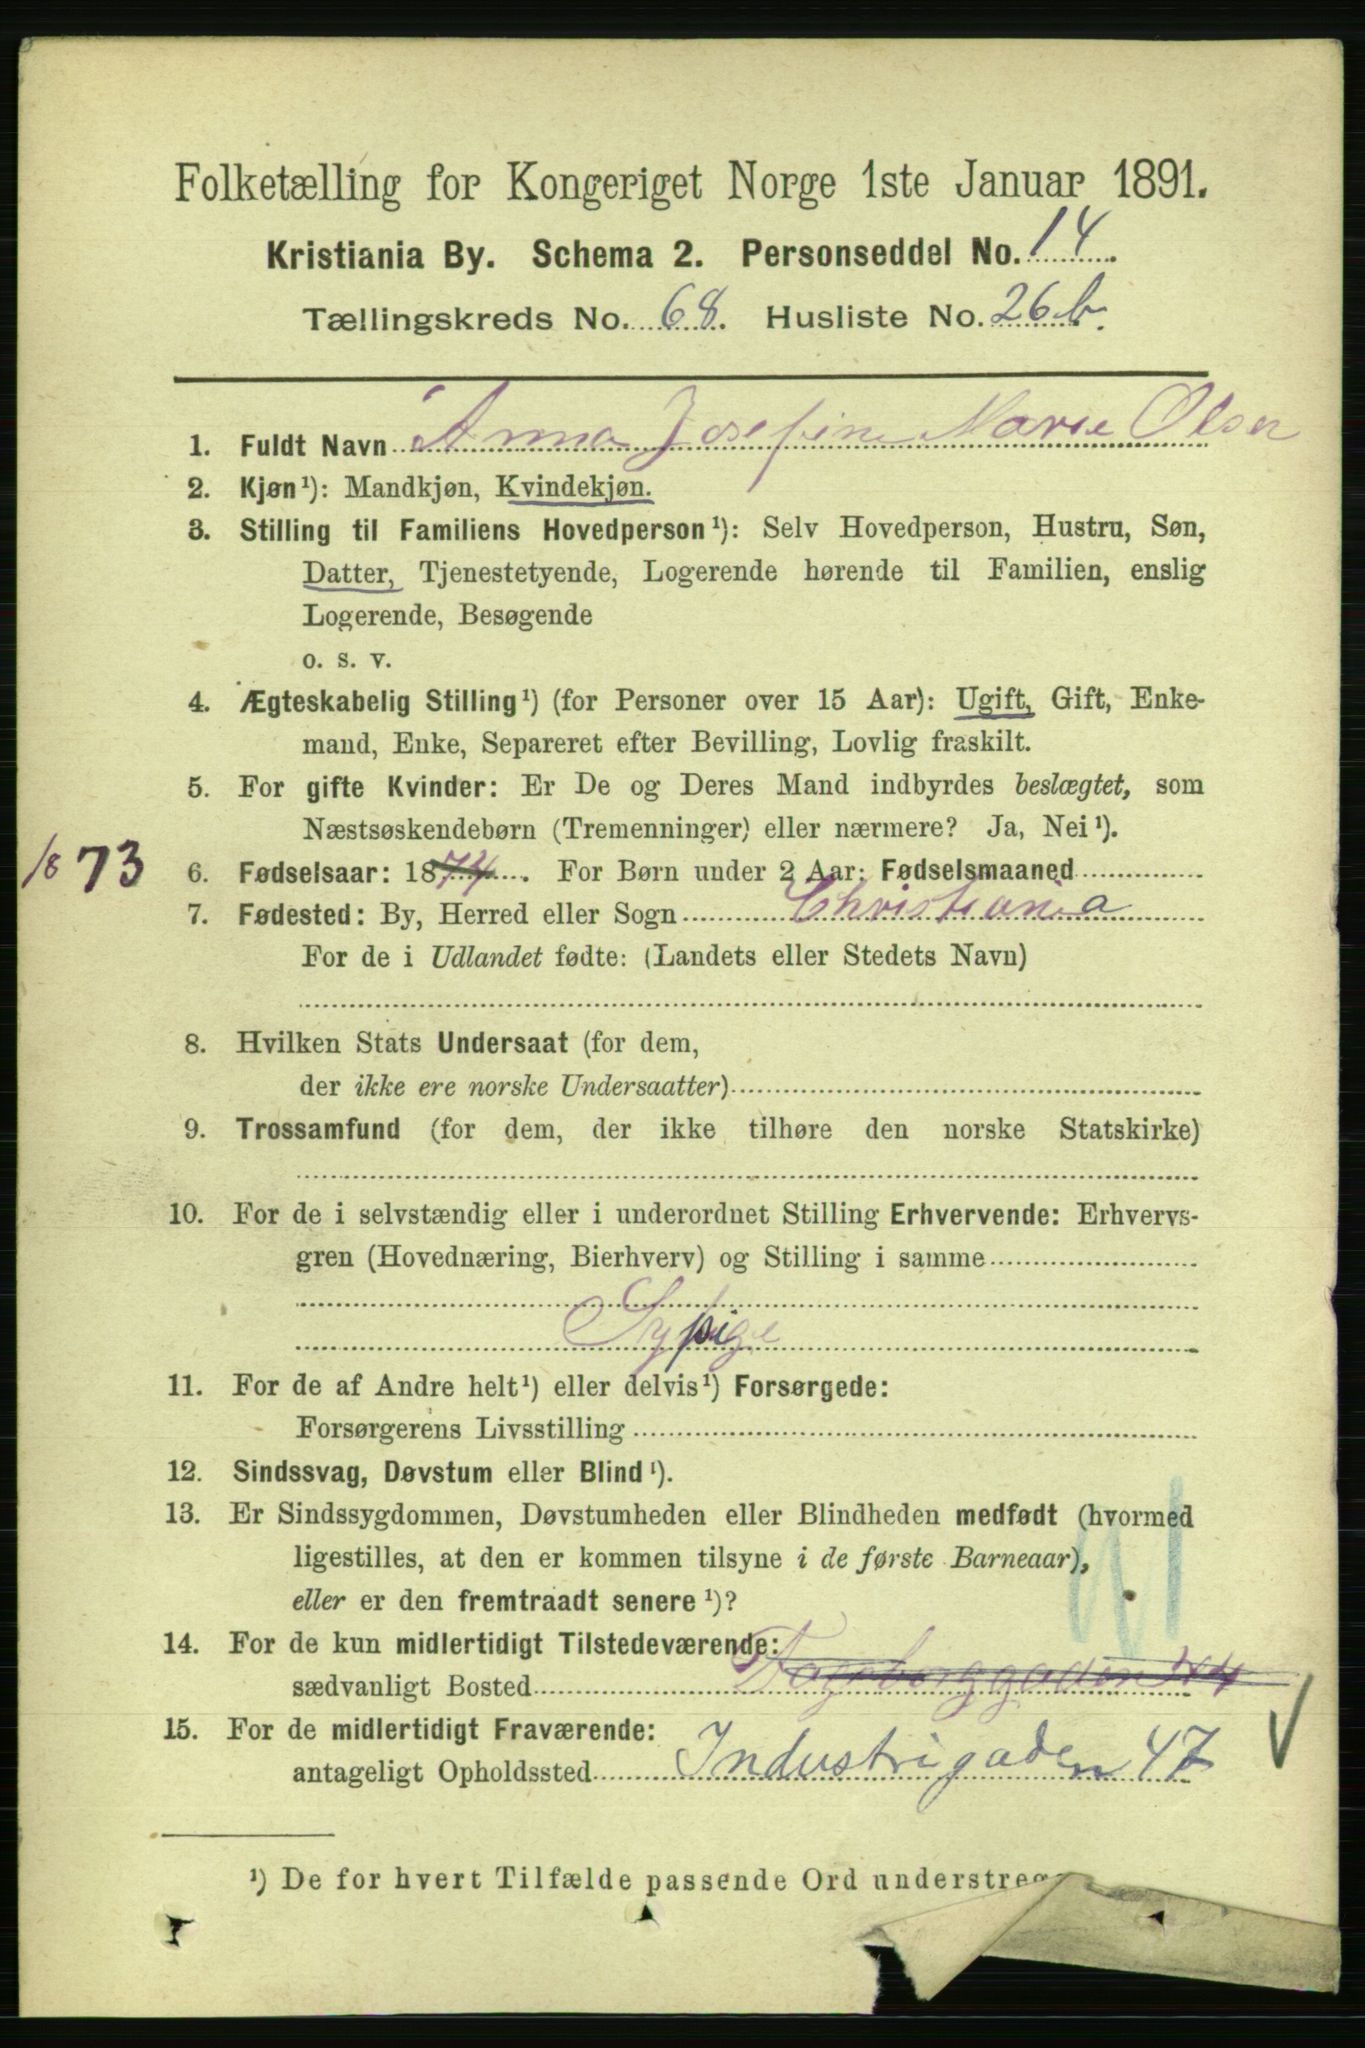 Folketælling for Kongeriget Norge 1ste Januar 1891.
Kristiania By. Schema 2. Personseddel No. 14.
Tællingskreds No. 68. Husliste No. 26b.
1. Fuldt Navn Anna Josefine Marie Olsen
2. Kjøn¹): Mandkjøn, Kvindekjøn.
3. Stilling til Familiens Hovedperson¹): Selv Hovedperson, Hustru, Søn,
Datter, Tjenestetyende, Logerende hørende til Familien, enslig
Logerende, Besøgende
o. s. v.
4. Ægteskabelig Stilling¹) (for Personer over 15 Aar): Ugift, Gift, Enke-
mand, Enke, Separeret efter Bevilling, Lovlig fraskilt.
5. For gifte Kvinder: Er De og Deres Mand indbyrdes beslægtet, som
Næstsøskendebørn (Tremenninger) eller nærmere? Ja, Nei¹).
1873 6. Fødselsaar: 1874. For Børn under 2 Aar: Fødselsmaaned
7. Fødested: By, Herred eller Sogn Christiania
For de i Udlandet fødte: (Landets eller Stedets Navn)
8. Hvilken Stats Undersaat (for dem,
der ikke ere norske Undersaatter)
9. Trossamfund (for dem, der ikke tilhøre den norske Statskirke)
10. For de i selvstændig eller i underordnet Stilling Erhvervende: Erhvervs-
gren (Hovednæring, Bierhverv) og Stilling i samme
Sypige
11. For de af Andre helt¹) eller delvis¹) Forsørgede:
Forsørgerens Livsstilling
12. Sindssvag, Døvstum eller Blind¹).
13. Er Sindssygdommen, Døvstumheden eller Blindheden medfødt (hvormed
ligestilles, at den er kommen tilsyne i de første Barneaar),
eller er den fremtraadt senere¹)?
14. For de kun midlertidigt Tilstedeværende:
sædvanligt Bosted Fageborggaden 44
15. For de midlertidigt Fraværende:
antageligt Opholdssted Industrigaden 47
¹) De for hvert Tilfælde passende Ord understreg